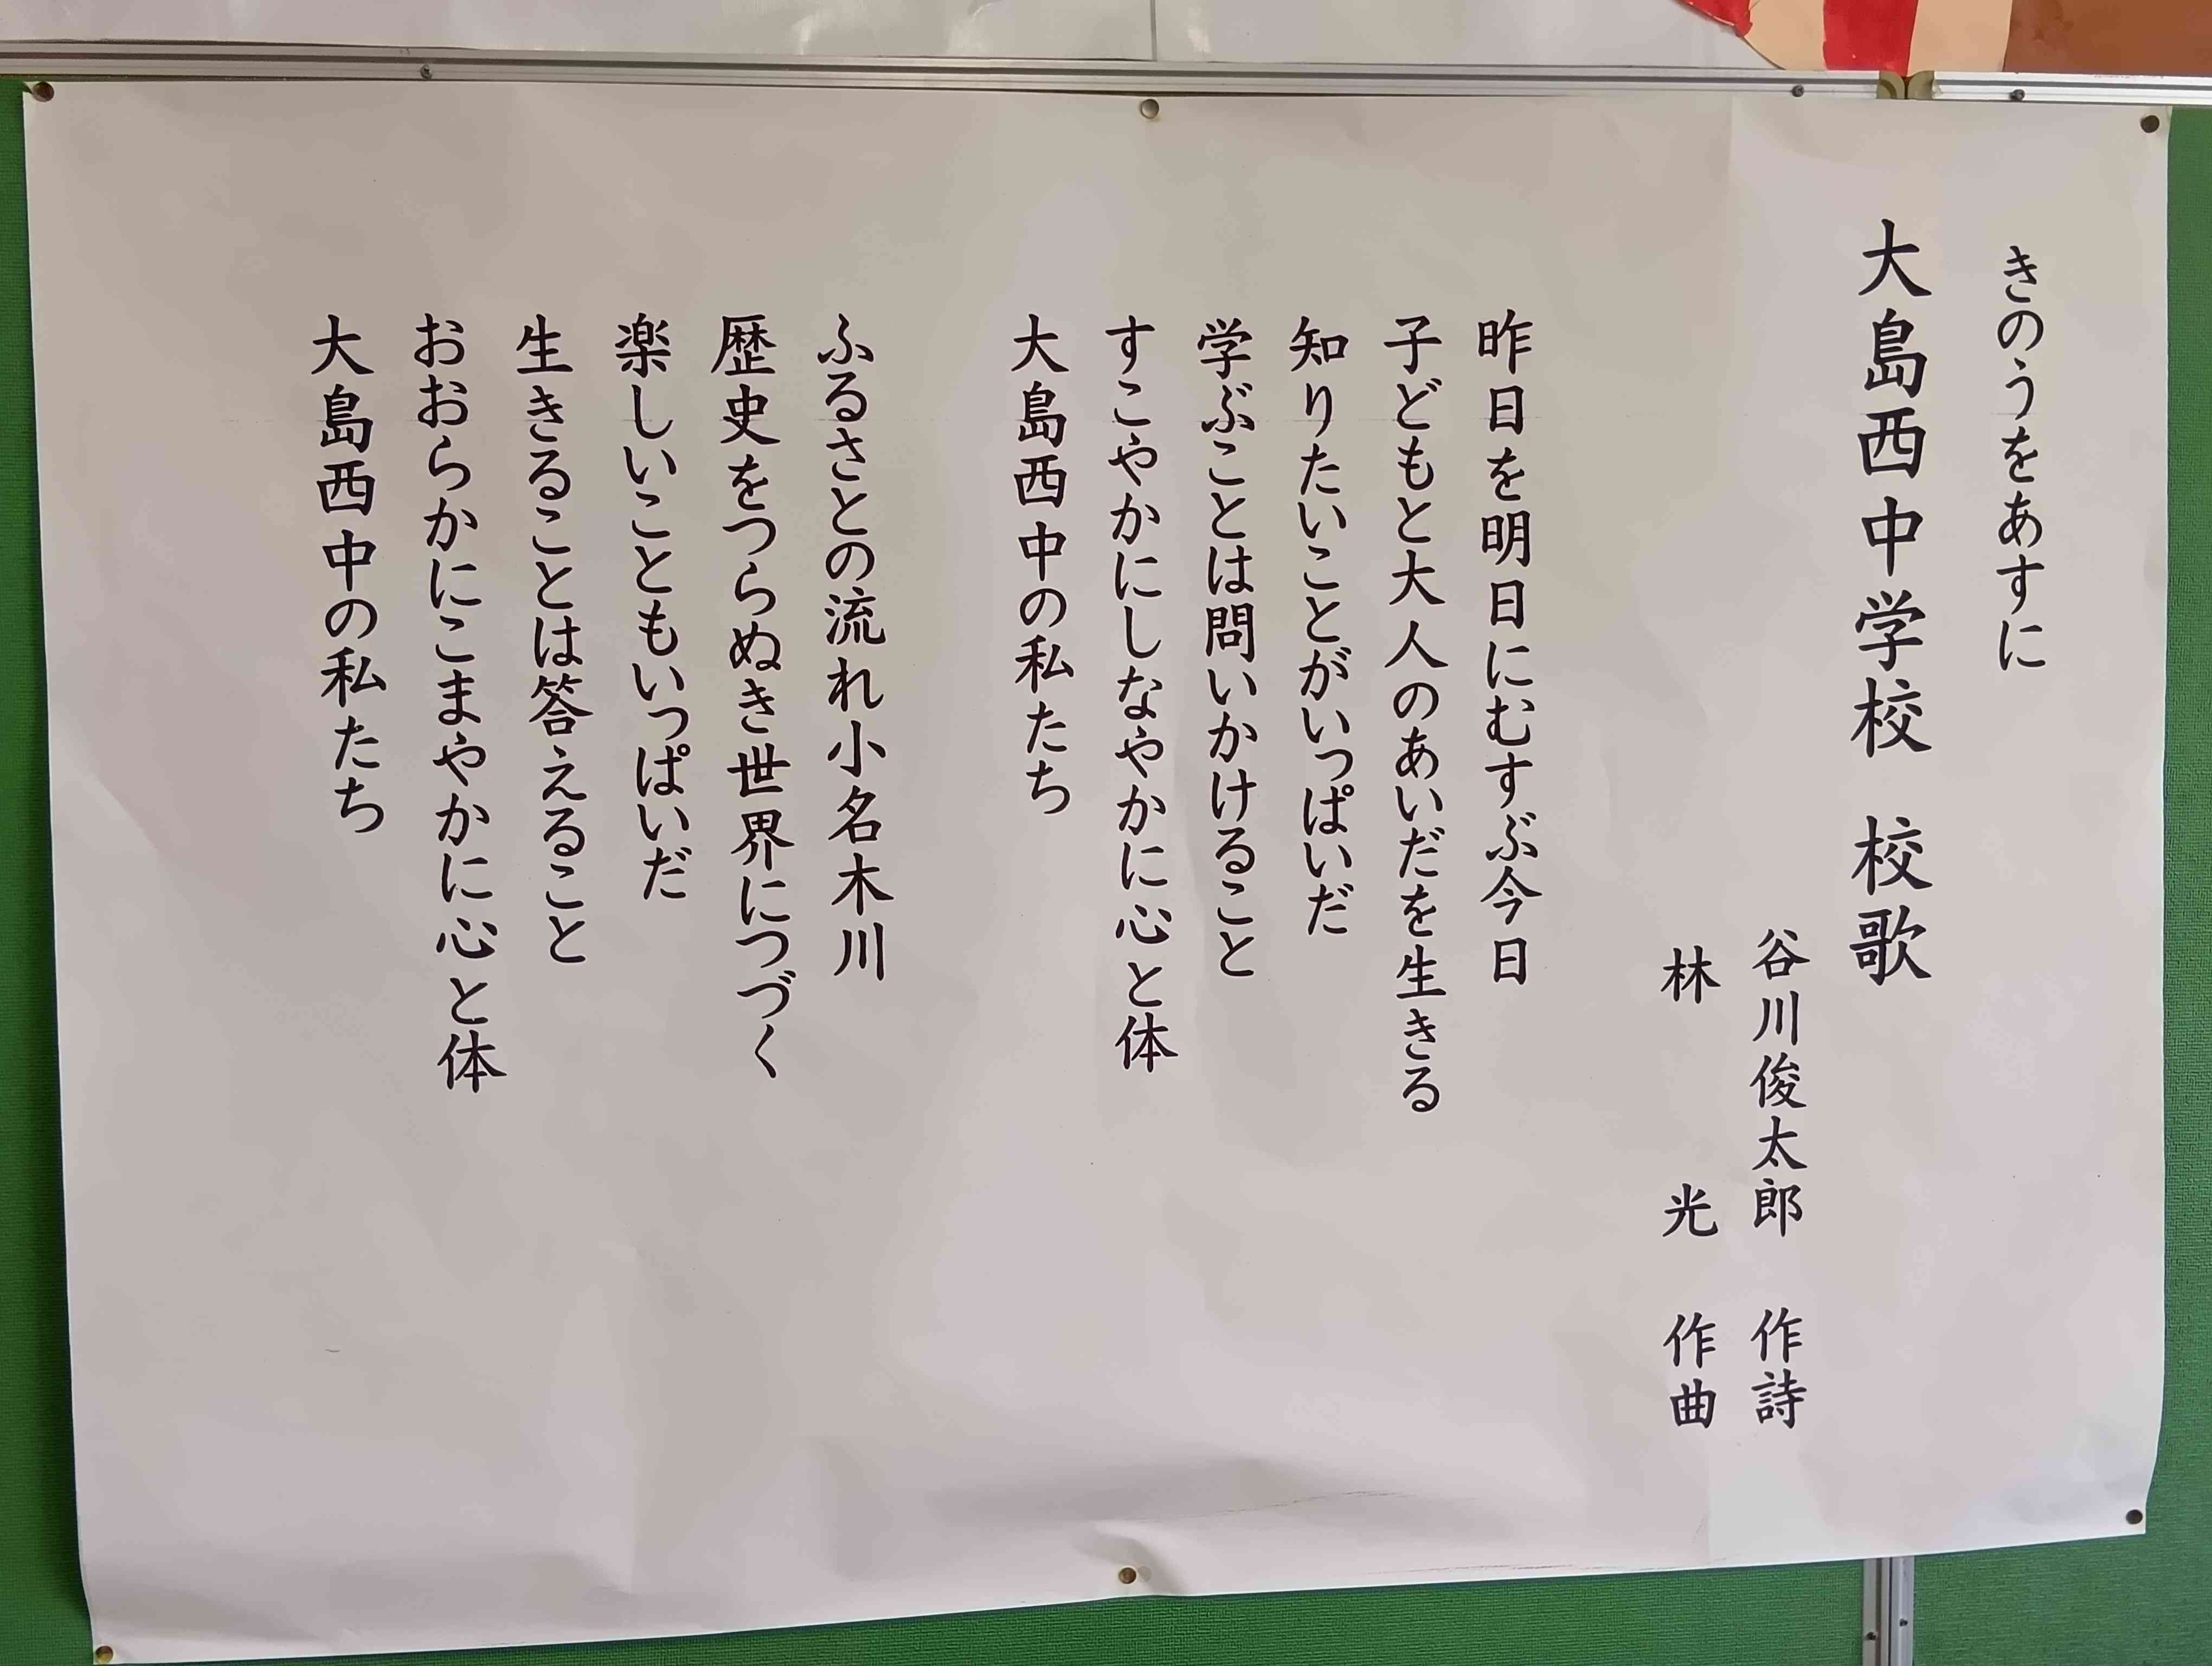 きのうをあすに
大島西中学校　校歌
谷川俊太郎　作詩
林　光　作曲
昨日を明日にむすぶ今日
子どもと大人のあいだを生きる
知りたいことがいっぱいだ
学ぶことは問いかけること
すこやかにしなやかに心と体
大島西中の私たち
ふるさとの流れ小名木川
歴史をつらぬき世界につづく
楽しいこともいっぱいだ
生きることは答えること
おおらかにこまやかに心と体
大島西中の私たち